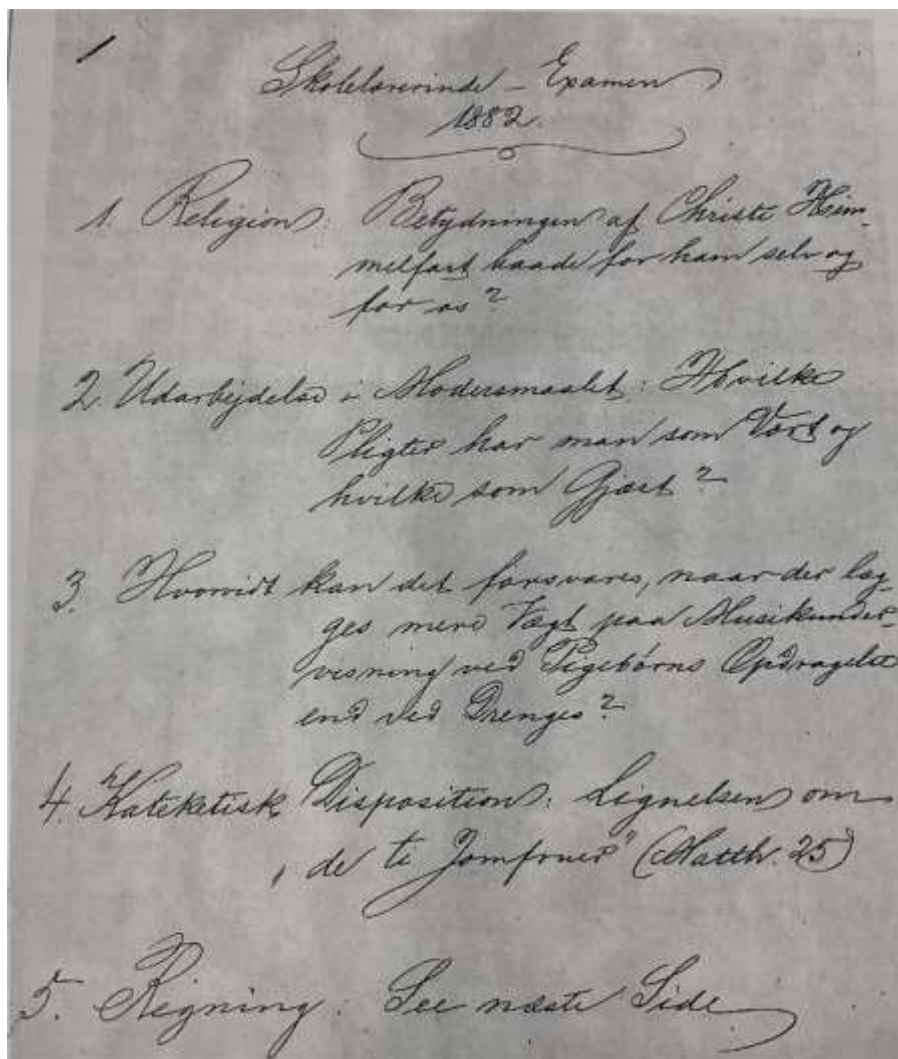 1
Skolelærerinde-Examen
1882.
1. Religion: Betydningen af Christi Him-
melfart baade for ham selv og
for os?
2. Udarbejdelse i Modersmaalet: Hvilke
Pligter har man som Vært og
hvilke som Gjæst?
3. Hvorvidt kan det forsvares, naar der læg-
ges mere Vægt paa Musikunder-
visning ved Pigebørns Opdragelse
end ved Drenges?
4. Kateketisk Disposition: Lignelsen om
"de ti Jomfruer" (Matth. 25)
5. Regning: See næste Side